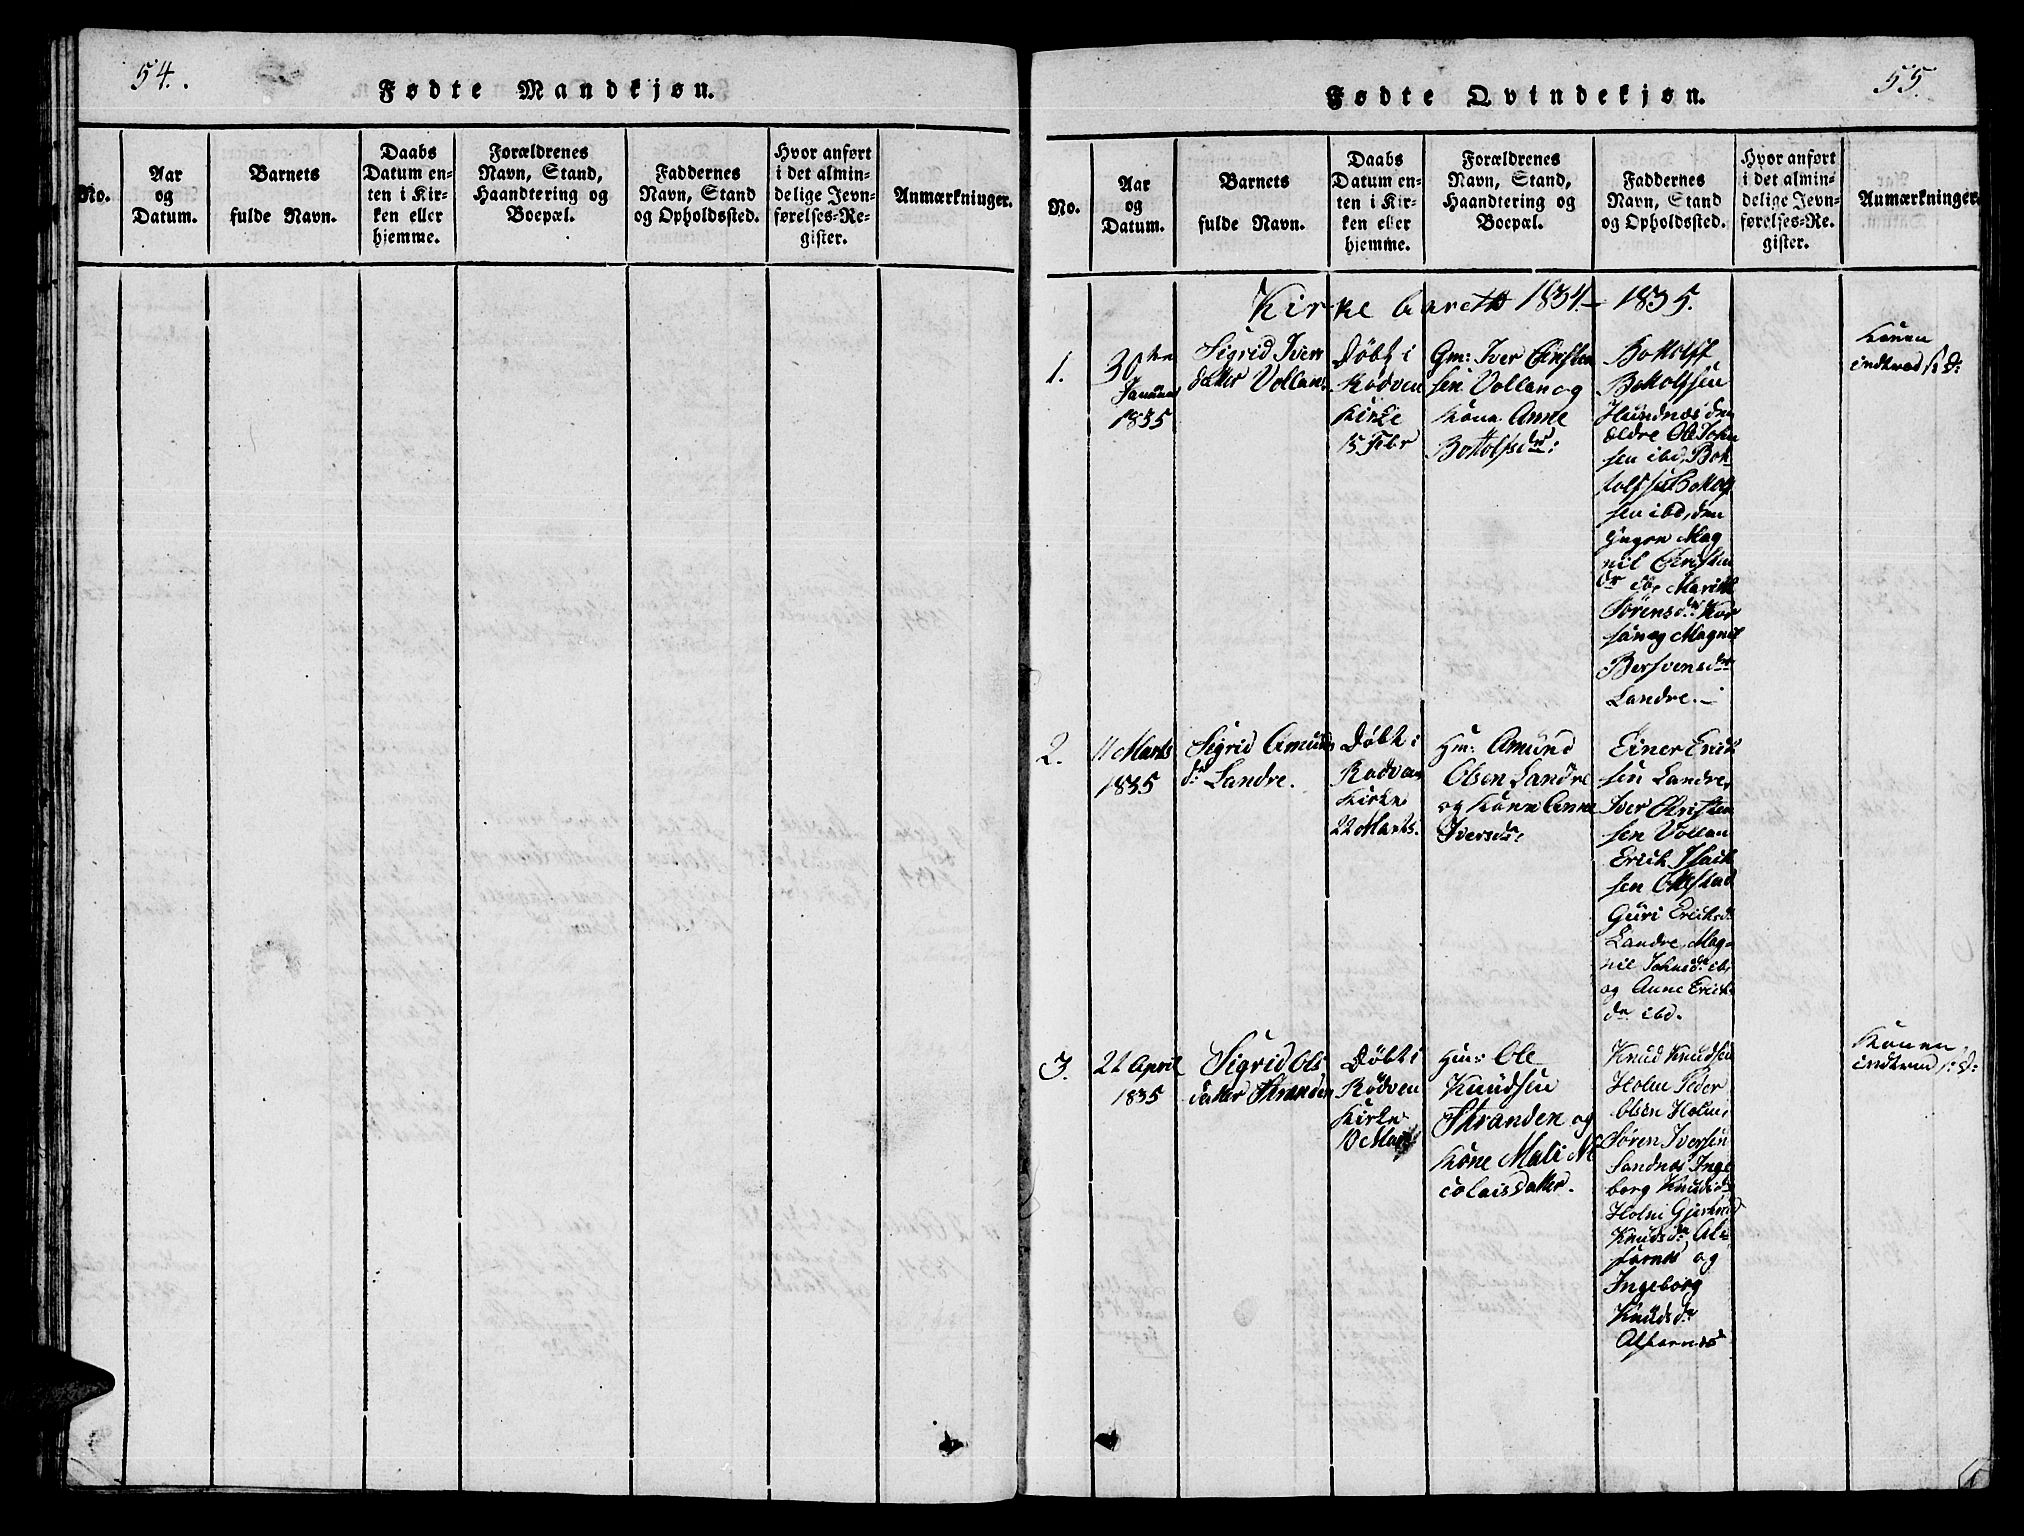 54.
Fødte Mandkjøn.
No.
Aar
og
Datum.
Barnets
fulde Navn.
Daabs
Datum en-
ten i Kir-
ken eller
hjemme.
Forældrenes
Navn, Stand,
Haandtering og
Boepæl.
Faddernes
Navn, Stand
og Opholdssted.
Hvor anført
i det almin-
delige Jevn-
førelses-Re-
gister.
Anmærkninger.
55.
Fødte Qvindekjøn.
No.
Aar
og
Datum.
Barnets
fulde Navn.
Daabs
Datum en-
ten i Kir-
ken eller
hjemme.
Forældrenes
Navn, Stand,
Haandtering og
Boepæl.
Faddernes
Navn, Stand
og Opholdssted.
Hvor anført
i det almin-
delige Jevn-
førelses-Re-
gister.
Anmærkninger.
Kirkeaaret 1834 - 1835.
1.
30te
Januar
1835
Sigrid Ivers
datter Vollan
Døbt i
Rødven
Kirke
15 Febr
Gm: Iver Christen
sen Vollan og
Kone Anne
Bottolfsdr:
Bottolf
Bottolfsen
Hundnæs den
ældre Ole John
sen ibd, Bot
tolf Bottolf
sen ibd, den
yngre Mag
nil Christen
dr ib, Marith
Sørensdr Kor
san og Magnil
Bersvensdr
Landre. -
Konen
indtraad s: D:
2.
11 Marts
1835
Sigrid Amunds
dr Landre.
Døbt i
Rødven
Kirke
22 Marts.
Hm: Amund
Olsen Landre
og Kone Anne
Iversdr
Einer Erich
sen Landre,
Iver Christen
sen Vollan
Erich Isach
sen Ottestad
Guri Erichsdr
Landre, Mag-
nil Johnsdr ib,
og Anne Erichs
dr ibd.
3.
22 April
1835
Sigrid Ols
datter Stranden
Døbt i
Rødven
Kirke
10 Mai
Hm: Ole
Knudsen
Stranden og
Kone Mali Ni
colaisdatter.
Knud Knudsen
Holm Peder
Olsen Holm,
Søren Iversen
Sandnes Inge
borg Knudsdr
Holm Gjertrud
Knudsdr Al
farnes og
Ingeborg
Knudsdr
Alfarnes
Konen
indtraad s: D: